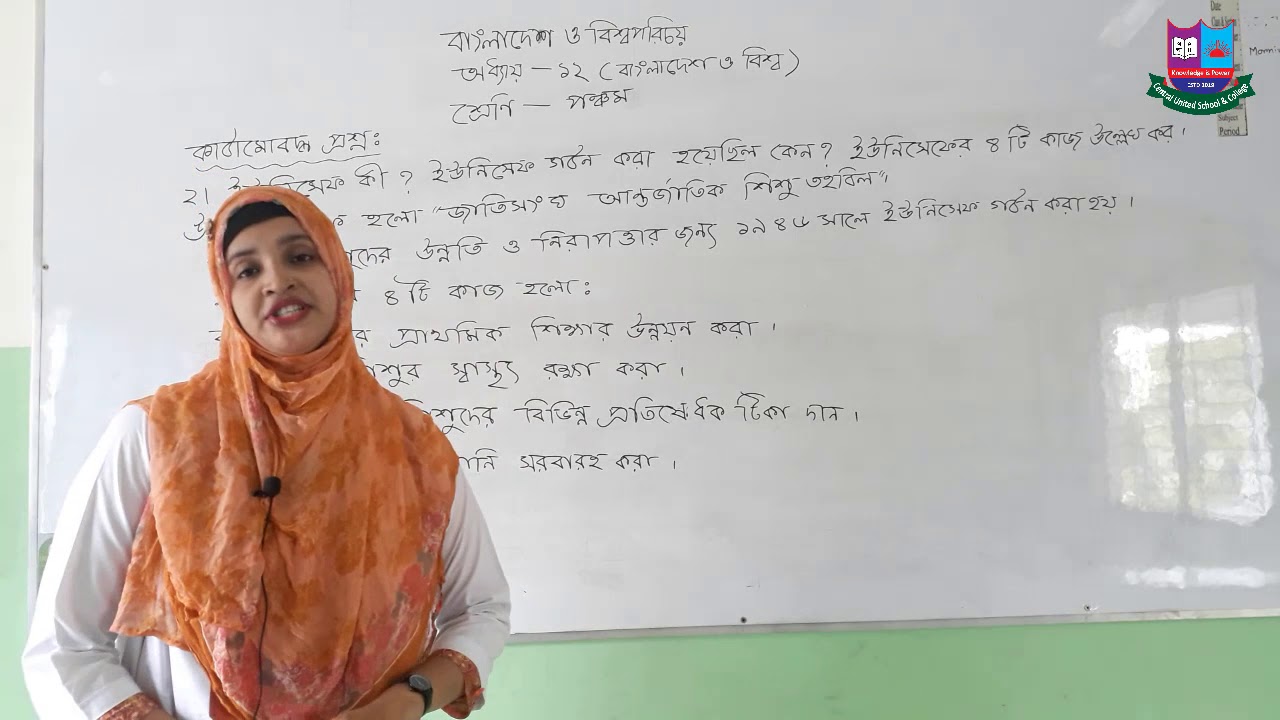 বাংলাদেশ ও বিশ্বপরিচয়
অধ্যায় – ১২ (বাংলাদেশ ও বিশ্ব)
শ্রেণি – পঞ্চম
কাঠামোবদ্ধ প্রশ্নঃ
২। ইউনিসেফ কী? ইউনিসেফ গঠন করা হয়েছিল কেন? ইউনিসেফের ৪টি কাজ উল্লেখ কর।
হলো "জাতিসংঘ আন্তর্জাতিক শিশু তহবিল"।
উন্নতি ও নিরাপত্তার জন্য ১৯৪৬ সালে ইউনিসেফ গঠন করা হয়।
৪টি কাজ হলো:
প্রাথমিক শিক্ষার উন্নয়ন করা।
স্বাস্থ্য রক্ষা করা।
বিভিন্ন প্রতিষেধক টিকা দান।
সরবারহ করা।
Knowledge is Power
ESTD 2018
Central United School & College
Date
Subject
Period